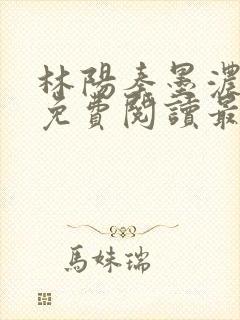 林陽秦墨濃
免費閱讀最
馬妹瑞